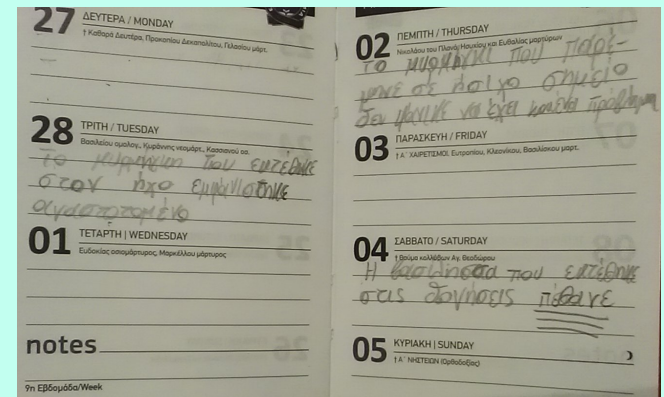 27 ΔΕΥΤΕΡΑ / MONDAY
† Καθαρά Δευτέρα, Προκοπίου Δεκαπολίτου, Γελασίου μάρτ.
28 ΤΡΙΤΗ / TUESDAY
Βασιλείου ομολογ., Κυράννης νεομάρτ., Κασσιανού οσ.
Το μυρμήγκι που εκτέθηκε
στον ήχο εμφανίστηκε
αναστατωμένο
01 ΤΕΤΑΡΤΗ | WEDNESDAY
Ευδοκίας οσιομάρτυρος, Μαρκέλλου μάρτυρος
notes
9η Εβδομάδα/Week
02 ΠΕΜΠΤΗ / THURSDAY
Νικολάου του Πλανά, Ησυχίου και Ευθαλίας μαρτύρων
Το μυρμήγκι που παρέ-
μεινε σε ήσιχο σημείο
δεν φάνηκε να έχει κανένα πρόβλημα
03 ΠΑΡΑΣΚΕΥΗ / FRIDAY
† Α΄ ΧΑΙΡΕΤΙΣΜΟΙ, Ευτροπίου, Κλεονίκου, Βασιλίσκου μαρτ.
04 ΣΑΒΒΑΤΟ / SATURDAY
† Θαύμα κολλύβων Αγ. Θεοδώρου
Η βασίλησσα που εκτέθηκε
στις δονήσεις πέθανε
05 ΚΥΡΙΑΚΗ | SUNDAY
† Α΄ ΝΗΣΤΕΙΩΝ (Ορθοδοξίας)